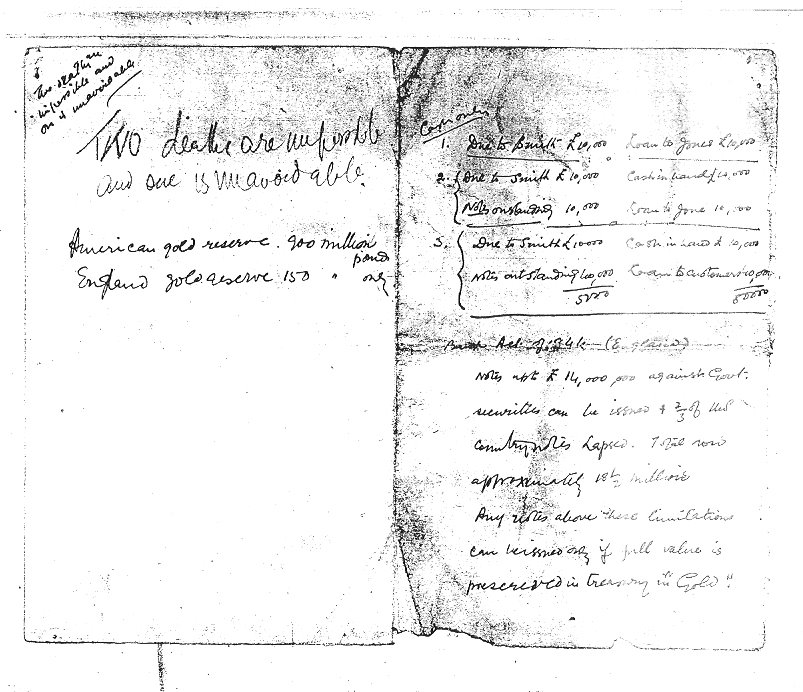 Two deaths are
impossible and
one is unavoidable
Two deaths are impossible
and one is unavoidable.
American gold reserve. 900 million
pounds
England gold reserve 150 " only
1. Due to Smith £10,000 Loan to Jones £10,000
2. Due to Smith £10,000 Cash in hand £10,000
Notes outstanding 10,000 Loan to Jone 10,000
3. Due to Smith £10000 Cash in hand £10,000
Notes outstanding 40,000 Loan to customers 40,000
50000
Bank Act of 1844 - (England)
Notes upto £14,000,000 against Govt.
securities can be issued + 2/3 of the
Country notes lapsed. Total now
approximately 18½ millions
Any notes above these limitations
can be issued only if full value is
preserved in treasury in "Gold".